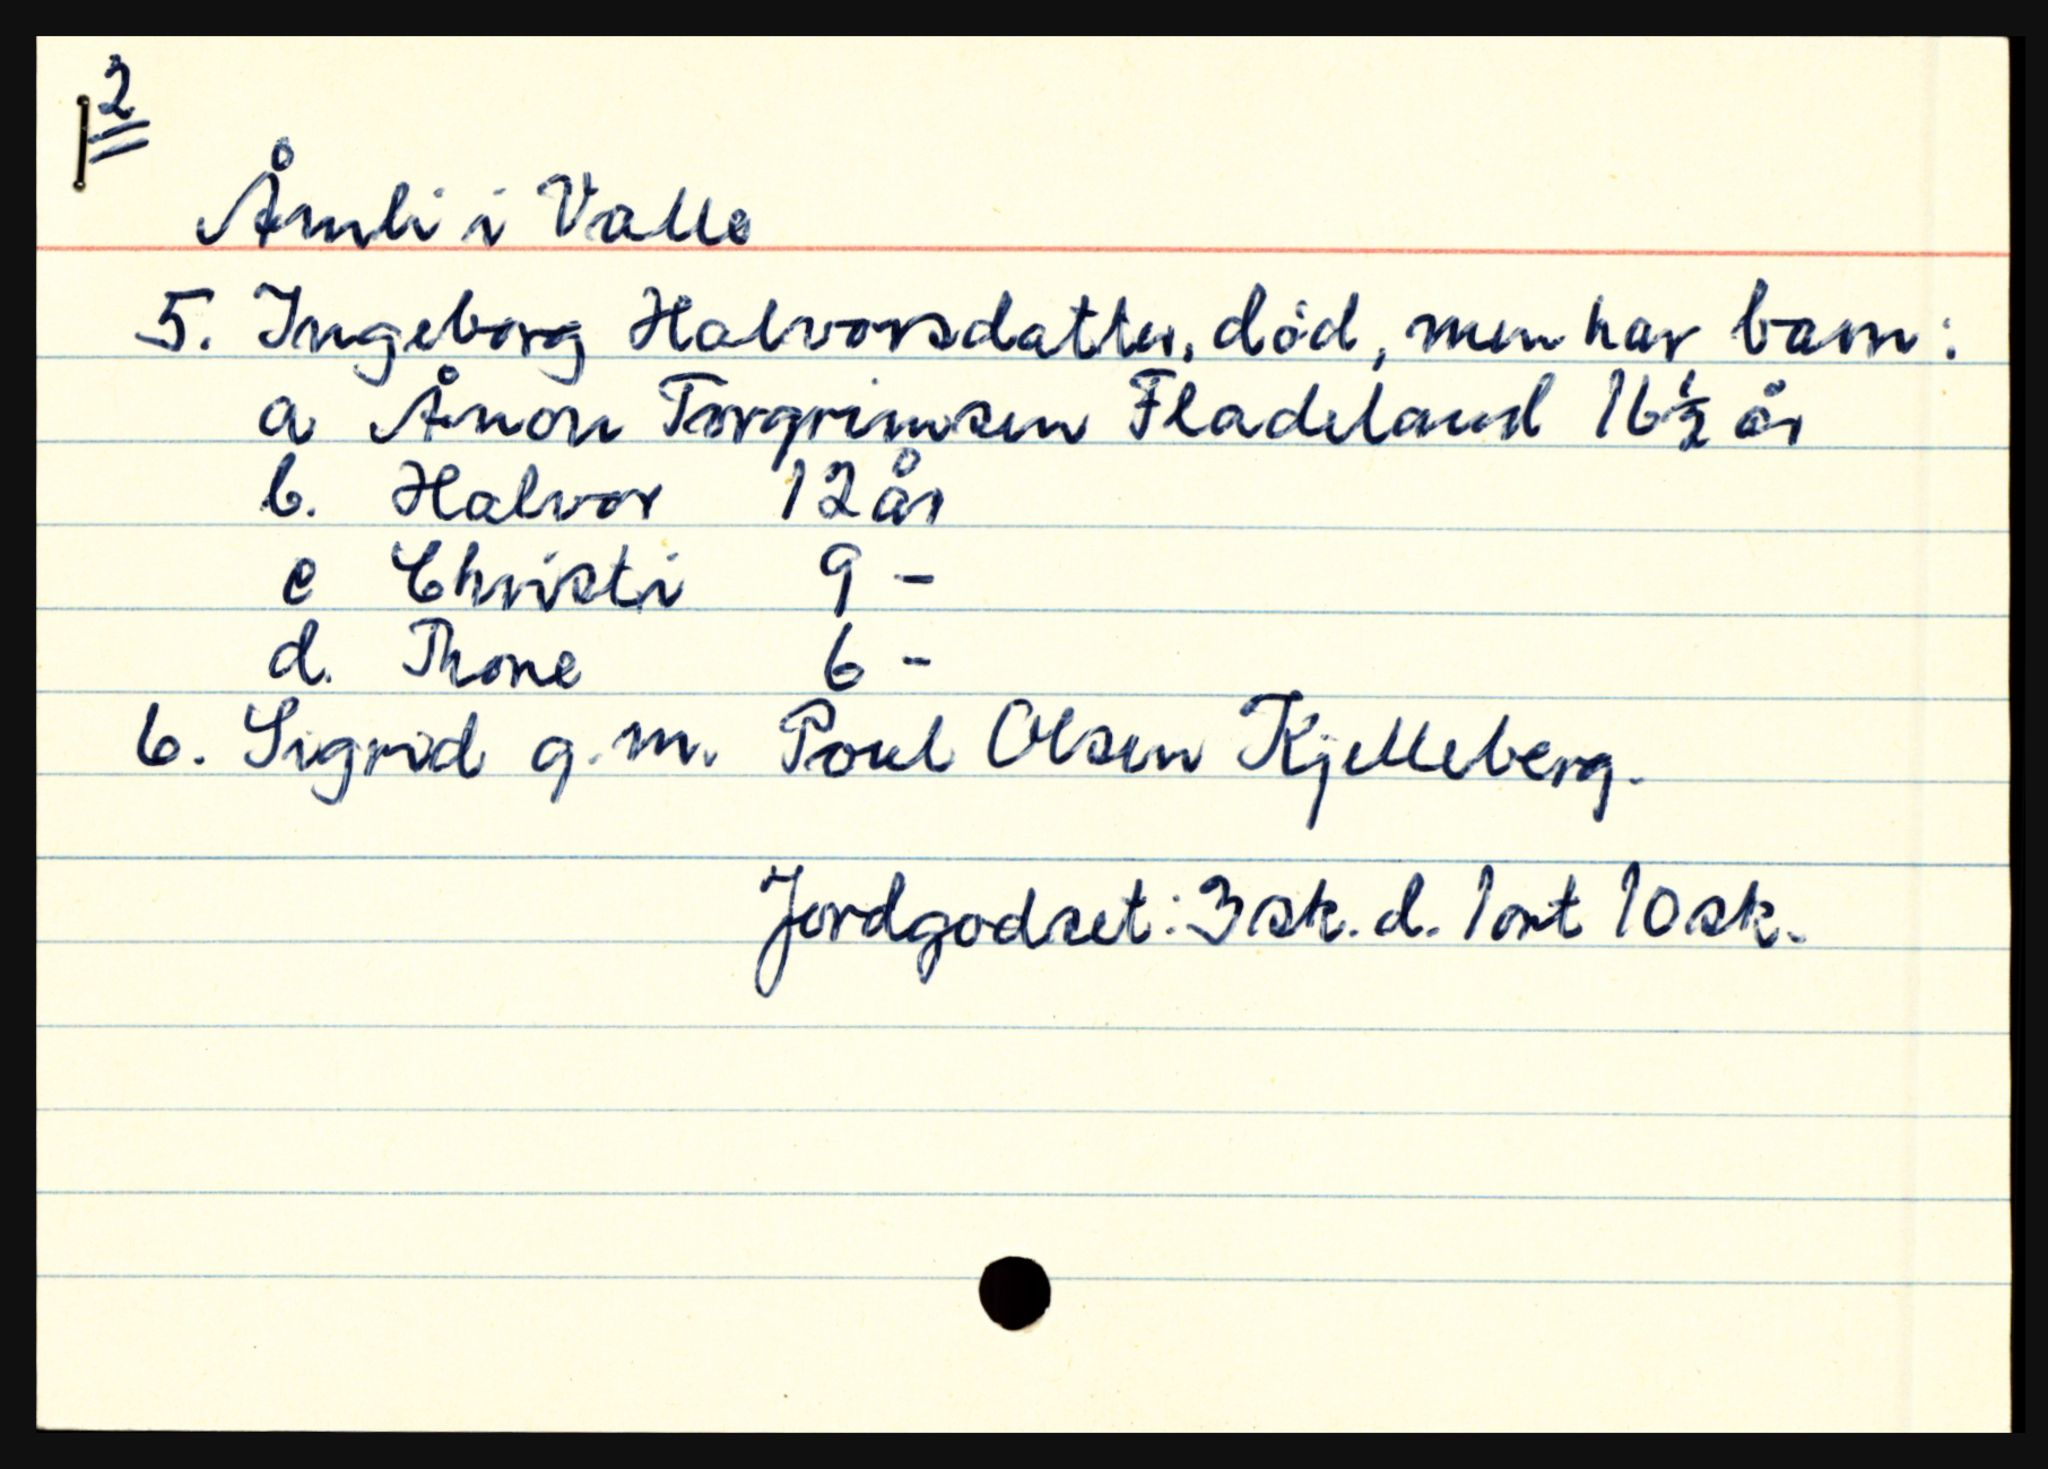 2
Åmli i Valle
5. Ingeborg Halvorsdatter, død, men har barn:
a Ånon Torgrimsen Fladeland 16½ år
b. Halvor 12 år
c Christi 9 -
d. Thone 6 -
6. Sigrid g. m. Poul Olsen Kjelleberg.
Jordgodset: 3 sk. d. 1 ort 10 sk.